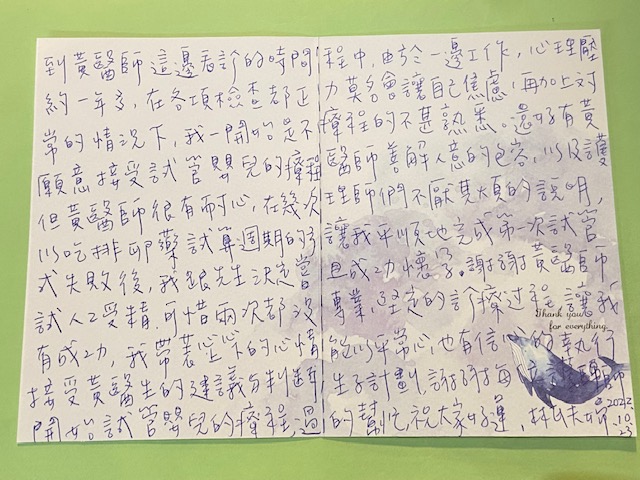 到黃醫師這邊看診的時間
約一年多,在各項檢查都正
常的情況下,我一開始是不
願意接受試管嬰兒的療程
但黃醫師很有耐心,在幾次
以吃排卵藥試算週期的方
式失敗後,我跟先生決定嘗
試人工受精,可惜兩次都沒
有成功,我帶著忐忑的心情
接受黃醫生的建議與判斷,
開始試管嬰兒的療程,過
程中,由於一邊工作,心理壓
力莫名會讓自己焦慮,再加上對
療程的不甚熟悉。還好有黃
醫師善解人意的包容,以及護
理師們不厭其煩的說明,
讓我平順地完成第一次試管
且成功懷孕。謝謝黃醫師
專業,堅定的診療過程,讓我
能以平常心,也有信心的執行
生子計劃,謝謝每
的幫忙,祝大家好運,林
2022
.10
.23
Thank you
for everything.